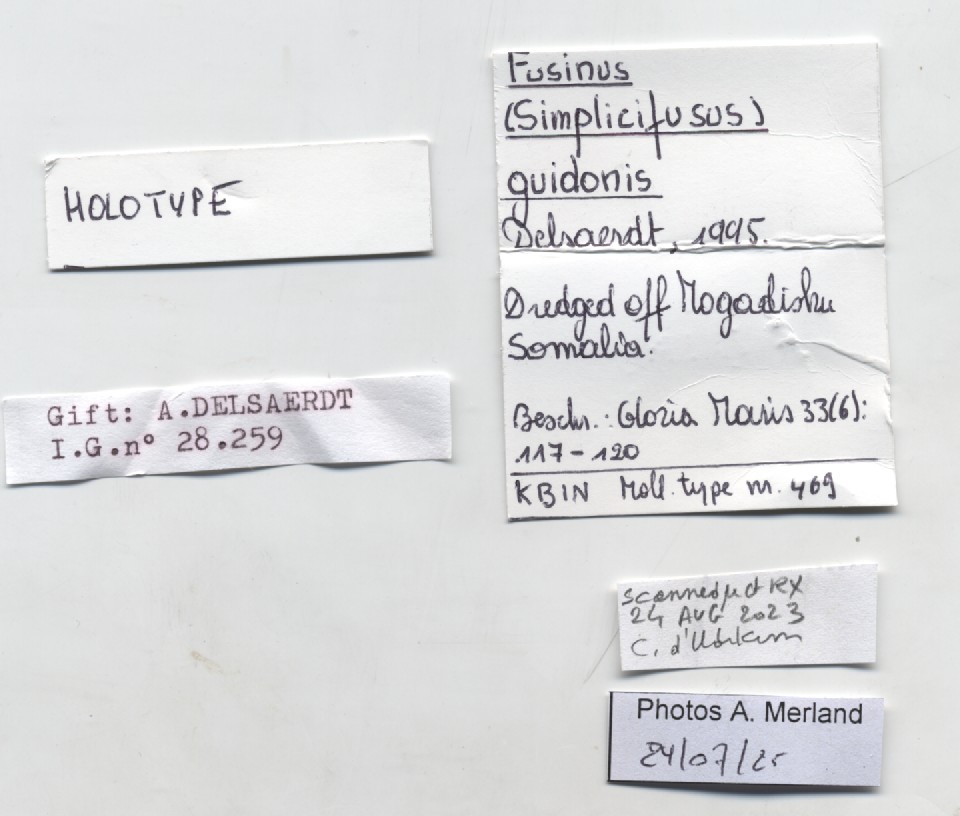 HOLOTYPE
Gift: A.DELSAERDT
I.G.n° 28.259
Fusinus
(Simplicifusus)
guidonis
Delsaerdt, 1995.
Dredged off Mogadishu
Somalia.
Beschr. : Gloria Maris 33(6):
117-120
KBIN Moll. type nr. 469
scanned µct RX
24 AUG 2023
C. d'Udekem
Photos A. Merland
24/07/25